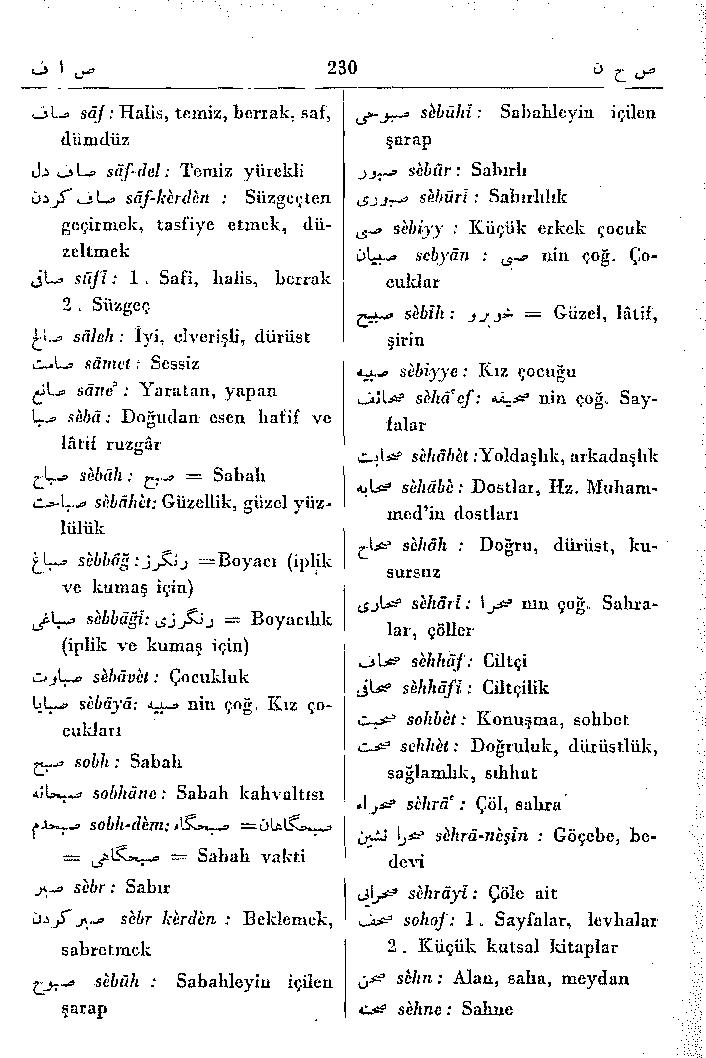 ص ا ف 230 ص ح ن
صاف sāf : Halis, temiz, berrak, saf,
dümdüz
صاف دل sāf-del : Temiz yürekli
صاف کردن sāf-kèrdèn : Süzgeçten
geçirmek, tasfiye etmek, dü-
zeltmek
صافی sāfī : 1 . Safi, halis, berrak
2 . Süzgeç
صالح sāleh : İyi, elverişli, dürüst
صامت sāmet : Sessiz
صانع sāne' : Yaratan, yapan
صبا sèbā : Doğudan esen hafif ve
lâtif ruzgâr
صباح sèbāh : صبح = Sabah
صباحت sèbāhèt: Güzellik, güzel yüz-
lülük
صباغ sèbbāğ : رنگرز =Boyacı (iplik
ve kumaş için)
صباغی sèbbāğī: رنگرزی = Boyacılık
(iplik ve kumaş için)
صباوت sèbāvèt : Çocukluk
صبایا sèbāyā: صبیه nin çoğ. Kız ço-
cukları
صبح sobh : Sabah
صبحانه sobhāne : Sabah kahvaltısı
صبحدم sobh-dèm: صبحگاهان= صبحگاه
= صبحگاهی = Sabah vakti
صبر sèbr : Sabır
صبر کردن sèbr kèrdèn : Beklemek,
sabretmek
صبوح sèbūh : Sabahleyin içilen
şarap
صبوحی sèbūhī : Sabahleyin içilen
şarap
صبور sèbūr : Sabırlı
صبوری sèbūrī : Sabırlılık
صبی sèbiyy : Küçük erkek çocuk
صبیان sebyān : صبی nin çoğ. Ço-
cuklar
صبیح sèbīh : خوبرو = Güzel, lâtif,
şirin
صبیه sèbiyye : Kız çocuğu
صحائف sèhā'ef: صحیفه nin çoğ. Say-
falar
صحابت sèhābèt :Yoldaşlık, arkadaşlık
صحابه sèhābè : Dostlar, Hz. Muham-
med'in dostları
صحاح sèhāh : Doğru, dürüst, ku-
sursuz
صحاری sèhārī : صحرا nın çoğ. Sahra-
lar, çöller
صحاف sèhhāf : Ciltçi
صحافی sèhhāfī : Ciltçilik
صحبت sohbèt : Konuşma, sohbet
صحت sehhèt : Doğruluk, dürüstlük,
sağlamlık, sıhhat
صحراء sèhrā' : Çöl, sahra
صحرا نشین sèhrā-neşīn : Göçebe, be-
devi
صحرایی sèhrāyī : Çöle ait
صحف sohof : 1 . Sayfalar, levhalar
2 . Küçük kutsal kitaplar
صحن sèhn : Alan, saha, meydan
صحنه sèhne : Sahne